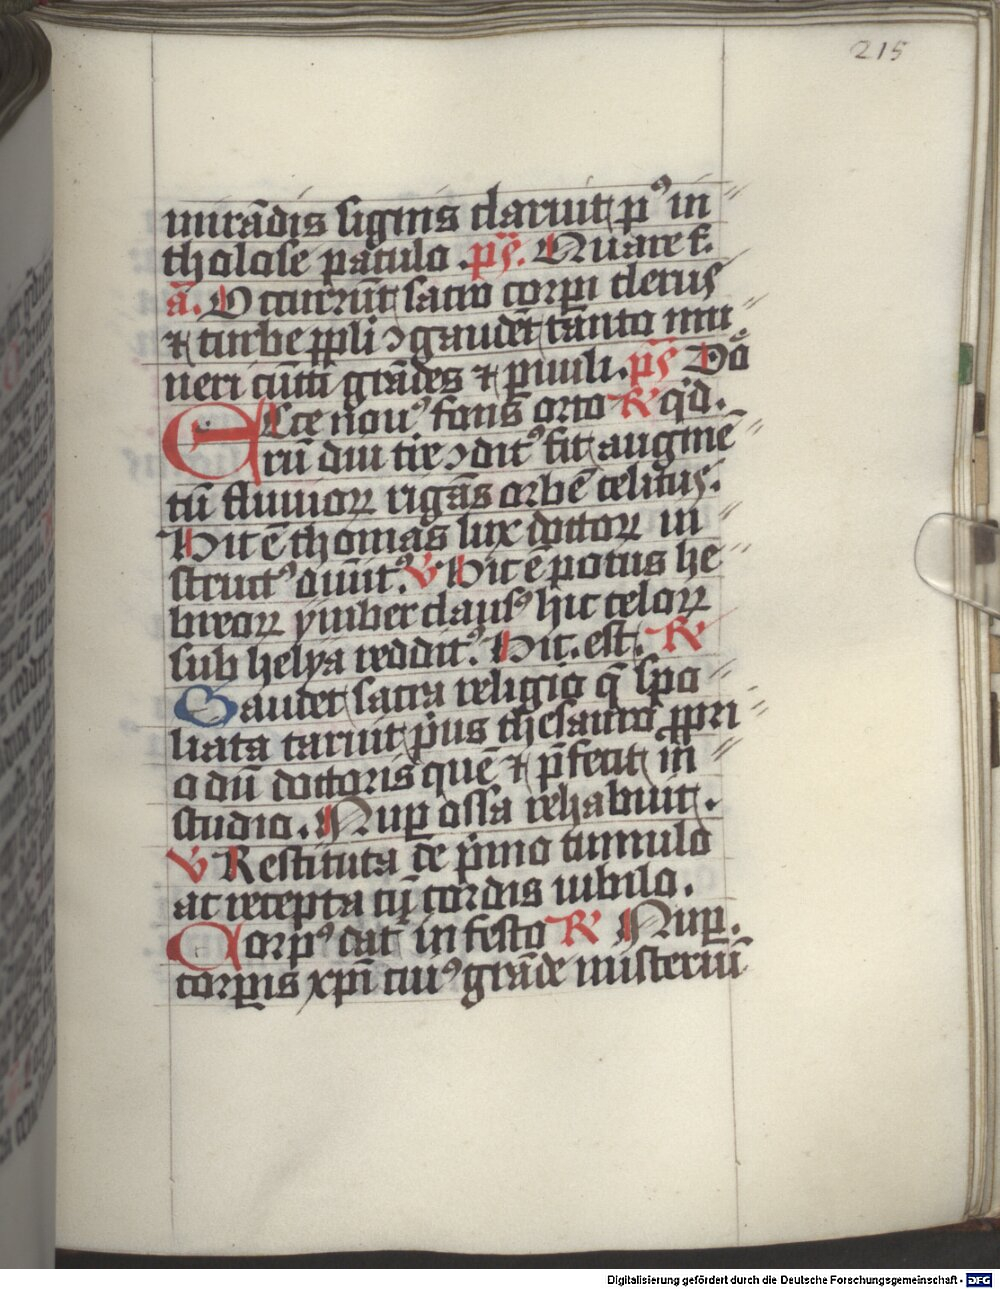 215
mirādis signis claruit pꝰ in
tholose patulo . pꝰ. Quare f.
a᷑. Occurrūt sacro corpi clerus
⁊ turbe ppli ↄgaudēt tanto mu
neri cūcti grādes ⁊ pusilli . pꝰ Dō
Ecce nouꝰ fons orto ℟ qͥd.
trū diu tire ↄditꝰ fit augmē
tū fluuioꝝ rigās orbē celitus.
Hic ē thomas lux doctoꝝ in
structꝰ diuītꝰ. ℣ Hic ē potus he
breoꝝ ymber clausꝰ hic celoꝝ
sub helya redditꝰ. Hic . est. ℟
Gaudet sacra religio q̄ spo
liata caruit pͥus thesauro ppri
o dū doctoris quē ⁊ p̄fecit in
studio. Nuꝑ ossa rehabuit .
℣ Restituta de pͥmo tumulo
ac recepta cū cordis iubilo .
Corpꝰ dat in festo ℟ Nuꝑ.
corpis xpī cuiꝰ grāde misteriū
Digitalisierung gefördert durch die Deutsche Forschungsgemeinschaft - DFG